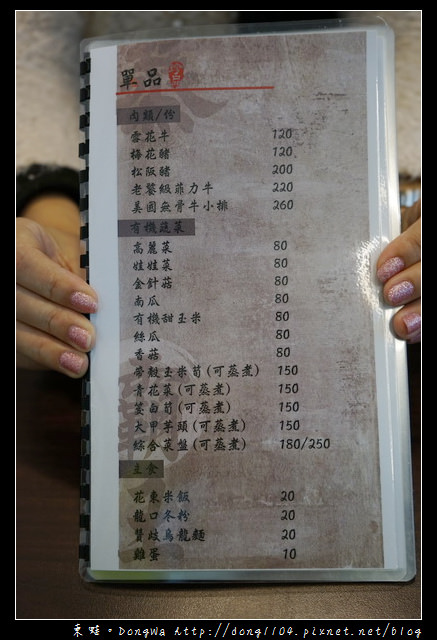 單品
肉類/份
雪花牛 120
梅花豬 120
松阪豬 200
老饕級菲力牛 220
美國無骨牛小排 260
有機蔬菜
高麗菜 80
娃娃菜 80
金針菇 80
南瓜 80
有機甜玉米 80
絲瓜 80
香菇 80
帶殼玉米筍(可蒸煮) 150
青花菜(可蒸煮) 150
茭白筍(可蒸煮) 150
大甲芋頭(可蒸煮) 150
綜合菜盤(可蒸煮) 180/250
主食
花東米飯 20
龍口冬粉 20
贊歧烏龍麵 20
雞蛋 10
東蛙。DongWa http://dong1104.pixnet.net/blog